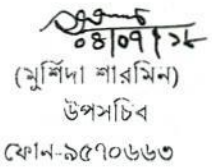 ০৪/০৭/১৮
(মুর্শিদা শারমিন)
উপসচিব
ফোন-৯৫৭০৬৬৩